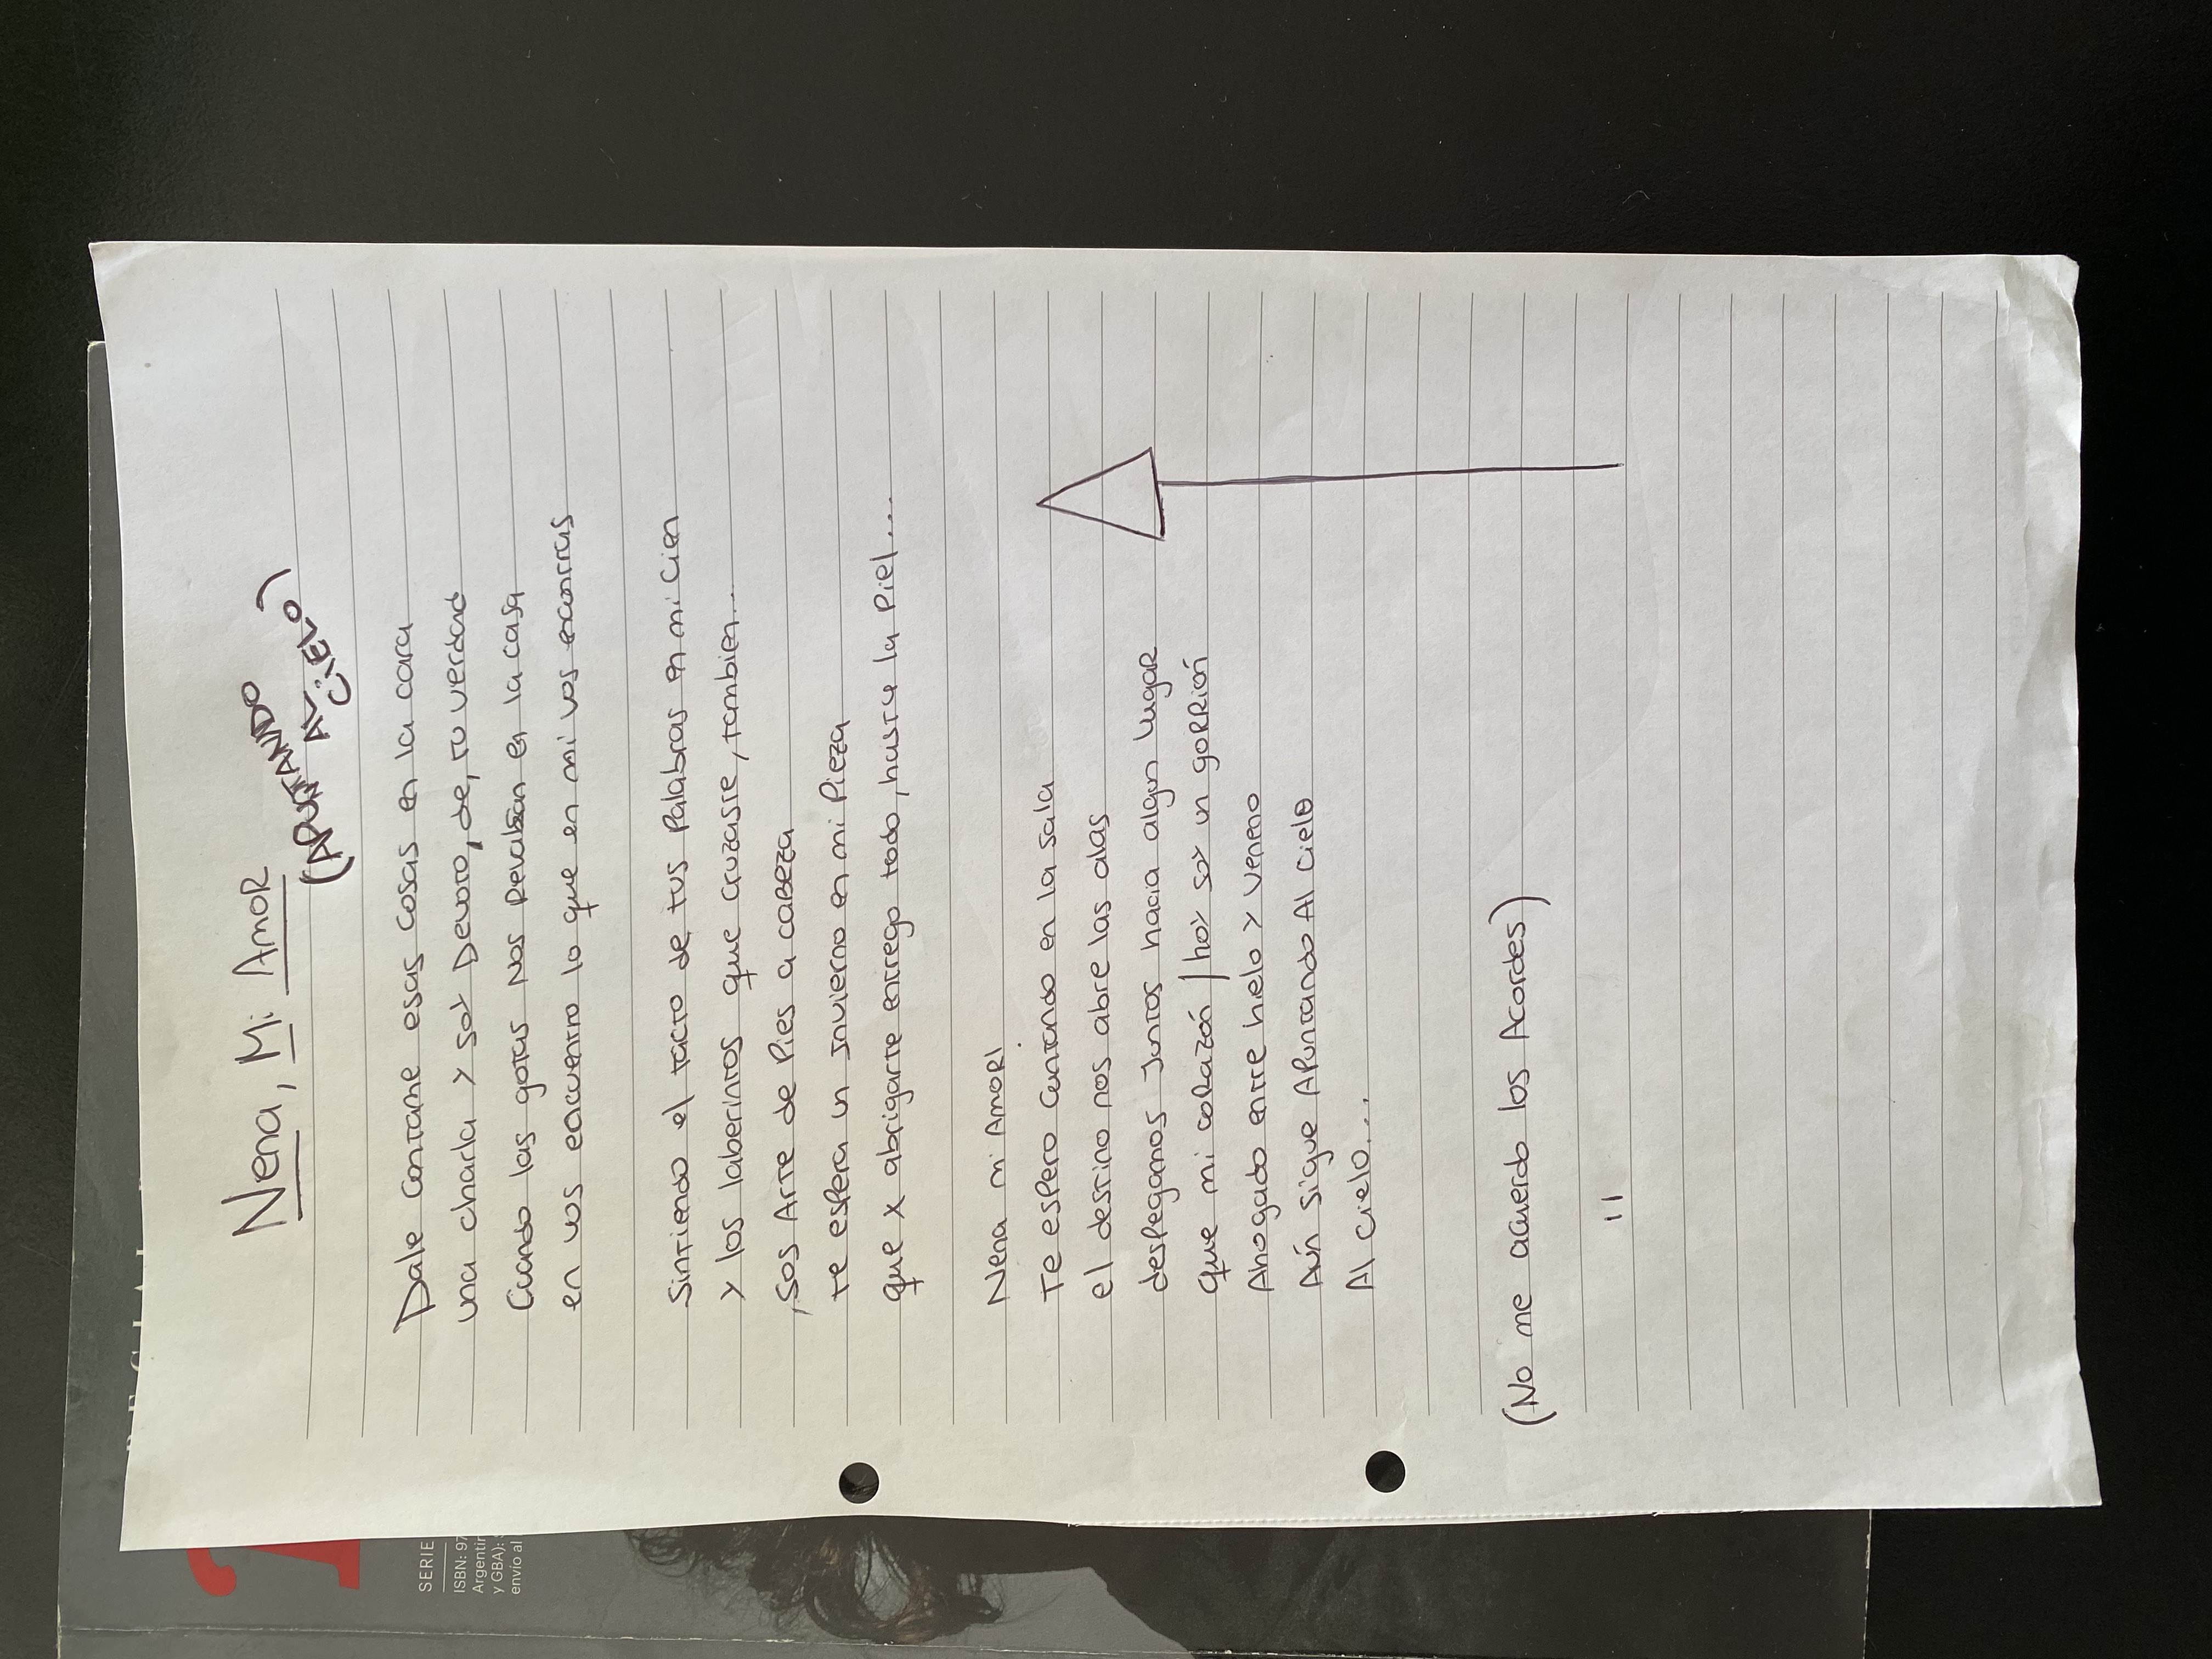 Nena, Mi Amor
(APUNTANDO
AL CiELO)
Dale contame esas cosas en la cara
una charla y soy Devoto, de, tu verdad
Cuando las gotas nos revalsan en la casa
en vos encuentro lo que en mi vos encontras
Sintiendo el tacto de tus Palabras en mi Cien
y los laberintos que cruzaste, tambien...
,Sos Arte de Pies a cabeza
te espera un invierno en mi Pieza
que x abrigarte entrego todo, hasta la Piel...
Nena mi Amor!
Te espero cantando en la sala
el destino nos abre las alas
despegamos Juntos hacia algun lugar
que mi corazón | hoy soy un gorrión
Ahogado entre hielo y veneno
Aún sigue Apuntando Al cielo
Al cielo...
(No me acuerdo los Acordes)
SERIE
ISBN: 97
Argentin
y GBA):
envío al